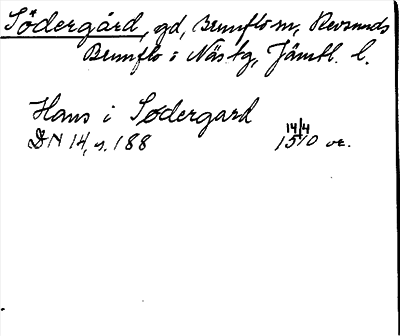 Södergård, gd, Brunflo sn, Revsunds
Brunflo i Näs tg, Jämtl. l.
Hans i Sødergard
DN 14, s. 188 14/4 1510 or.